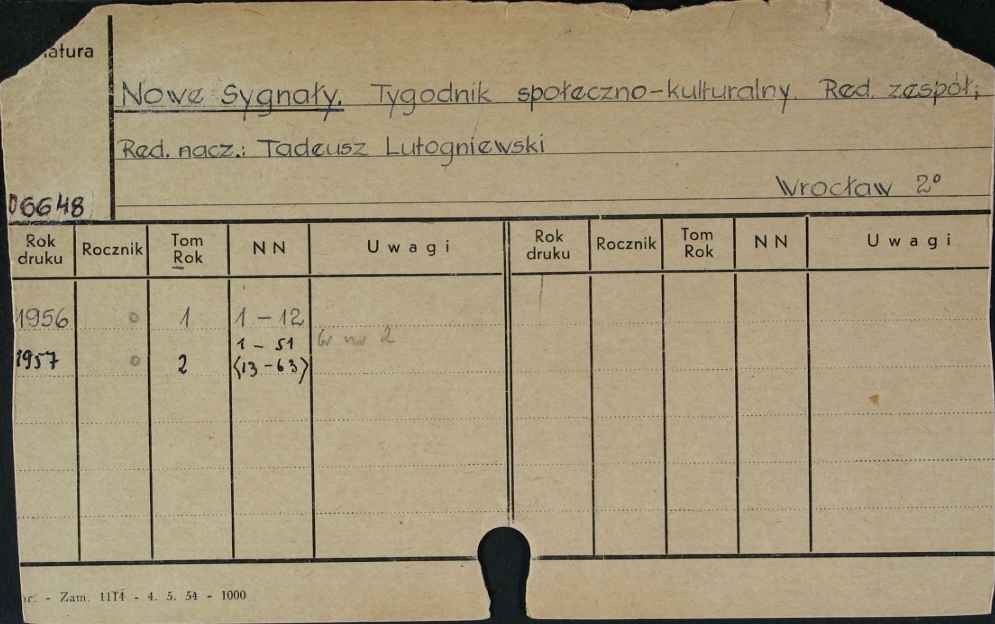 atura
Nowe Sygnały. Tygodnik społeczno-kulturalny. Red. zespół;
Red. nacz.: Tadeusz Lutogniewski
Wrocław 2°
06648
Rok druku Rocznik Tom Rok NN Uwagi Rok druku Rocznik Tom Rok NN Uwagi
1956 o 1 1-12
1957 o 2 1-51 (13-63) nr 2
- Zam. 1114 - 4. 5. 54 - 1000